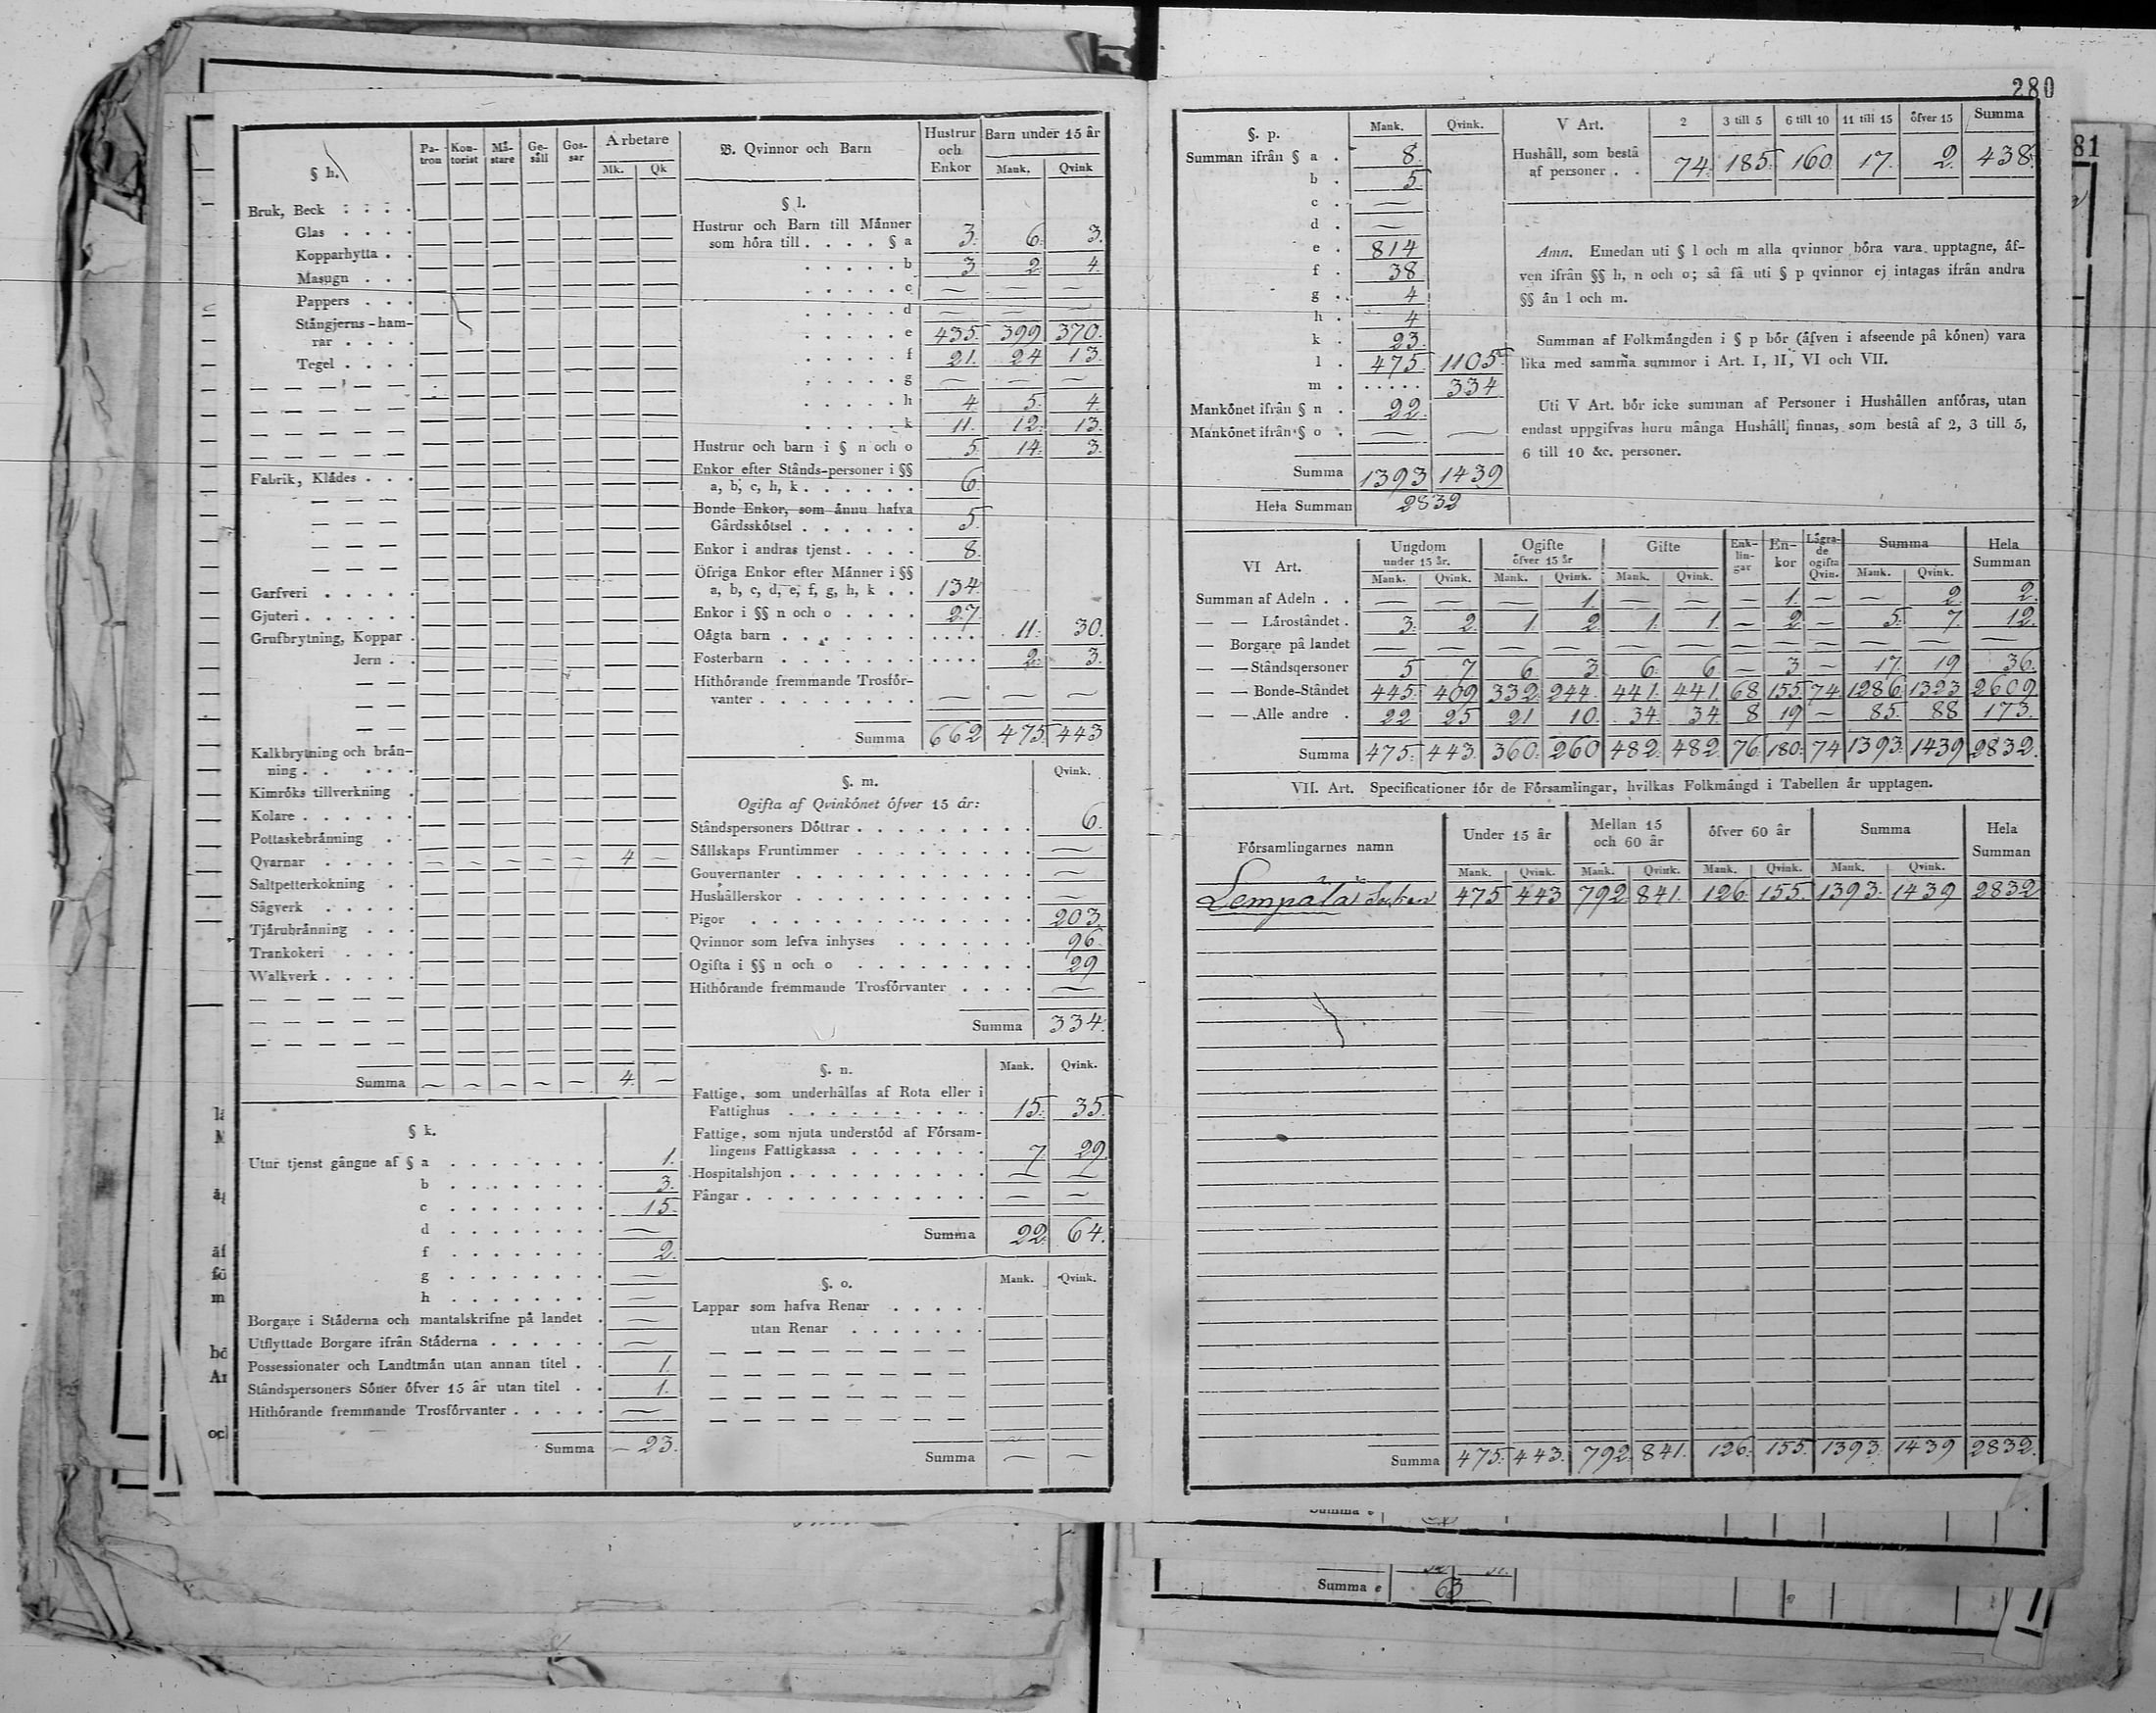 280
81
§ h.
Pa-tron Kon-torist Må-stare Ge-såll Gos-sar Arbetare Mk. Qk
Bruk, Beck . . . .
Glas . . . .
Kopparhytta . .
Masugn . . .
Pappers . . .
Stångjerns-ham-
rar . . . .
Tegel . . . .
Fabrik, Klådes . . .
Garfveri . . . . .
Gjuteri . . . . . .
Grufbrytning, Koppar .
Jern . .
Kalkbrytning och brån-
ning . . . . . .
Kimróks tillverkning .
Kolare . . . . . .
Pottaskebrånning . .
Qvarnar . . . . . — — — — — 4 —
Saltpetterkokning . .
Sågverk . . . . .
Tjårubrånning . . .
Trankokeri . . . .
Walkverk . . . . .
Summa — — — — — 4. —
§ k.
Utur tjenst gångne af § a . . . . . . . . 1.
b . . . . . . . . 3.
c . . . . . . . . 15.
d . . . . . . . . —
f . . . . . . . . 2.
g . . . . . . . . —
h . . . . . . . . —
Borgare i Ståderna och mantalskrifne på landet . —
Utflyttade Borgare ifrån Ståderna . . . . . . —
Possessionater och Landtmån utan annan titel . . 1.
Ståndspersoners Sóner ófver 15 år utan titel . . 1.
Hithórande fremmande Trosfórvanter . . . . . —
Summa — 23.
B. Qvinnor och Barn
Hustrur och Enkor Barn under 15 år Mank. Qvink
§ l.
Hustrur och Barn till Månner
som hóra till . . . . § a 3. 6. 3.
. . . . . b 3 2 4.
. . . . . c — — —
. . . . . d — — —
. . . . . e 435. 399 370.
. . . . . f 21. 24 13.
. . . . . g — — —
. . . . . h 4. 5. 4.
. . . . . k 11. 12. 13.
Hustrur och barn i § n och o 5. 14. 3.
Enkor efter Stånds-personer i §§
a, b, c, h, k . . . . . . 6.
Bonde Enkor, som ånnu hafva
Gårdsskótsel . . . . . . 5.
Enkor i andras tjenst . . . . 8.
Öfriga Enkor efter Månner i §§
a, b, c, d, e, f, g, h, k . . 134.
Enkor i §§ n och o . . . . 27.
Oågta barn . . . . . . . . . . . . 11. 30.
Fosterbarn . . . . . . . . . . . . 2. 3.
Hithórande fremmande Trosfór-
vanter . . . . . . . . . — — —
Summa 662 475. 443
§. m. Qvink.
Ogifta af Qvinkónet ófver 15 år:
Ståndspersoners Dóttrar . . . . . . . . . 6.
Sållskaps Fruntimmer . . . . . . . . . —
Gouvernanter . . . . . . . . . . . . —
Hushållerskor . . . . . . . . . . . . —
Pigor . . . . . . . . . . . . . . 203.
Qvinnor som lefva inhyses . . . . . . . 96.
Ogifta i §§ n och o . . . . . . . . . 29
Hithórande fremmande Trosfórvanter . . . . —
Summa 334.
§. n. Mank. Qvink.
Fattige, som underhållas af Rota eller i
Fattighus . . . . . . . . . . 15. 35.
Fattige, som njuta understód af Fórsam-
lingens Fattigkassa . . . . . . . 7. 29.
Hospitalshjon . . . . . . . . . . . — —
Fångar . . . . . . . . . . . . . — —
Summa 22. 64.
§. o. Mank. Qvink.
Lappar som hafva Renar . . . . .
utan Renar . . . . . . .
Summa — —
§. p. Mank. Qvink.
Summan ifrån § a . 8.
b . 5
c . —
d . —
e . 814
f . 38
g . 4
h . 4
k . 23.
l . 475. 1105.
m . . . . . . 334
Mankónet ifrån § n . 22.
Mankónet ifrån § o . — —
Summa 1393 1439
Hela Summan 2832
V Art. 2 3 till 5 6 till 10 11 till 15 ófver 15 Summa
Hushåll, som bestå
af personer . . 74. 185. 160. 17. 2. 438.
Anm. Emedan uti § l och m alla qvinnor bóra vara upptagne, åf-
ven ifrån §§ h, n och o; så få uti § p qvinnor ej intagas ifrån andra
§§ ån l och m.
Summan af Folkmångden i § p bór (åfven i afseende på kónen) vara
lika med samma summor i Art. I, II, VI och VII.
Uti V Art. bór icke summan af Personer i Hushållen anfóras, utan
endast uppgifvas huru många Hushåll finnas, som bestå af 2, 3 till 5,
6 till 10 &c. personer.
VI Art. Ungdom under 15 år. Ogifte ófver 15 år Gifte Enk-lin-gar En-kor Lågra-de ogifta Qvin. Summa Hela Summan
Mank. Qvink. Mank. Qvink. Mank. Qvink. Mank. Qvink.
Summan af Adeln . . — — — 1. — — — 1. — — 2. 2.
— — Lårostândet . 3. 2. 1. 2. 1. 1. — 2. — 5. 7 12.
— Borgare på landet — — — — — — — — — — — —
— — Ståndsqersoner 5 7 6 3 6. 6. — 3 — 17. 19 36.
— — Bonde-Ståndet 445. 409 332. 244. 441. 441. 68 155. 74. 1286. 1323 2609.
— — Alle andre . 22 25 21 10. 34. 34. 8 19 — 85. 88 173.
Summa 475. 443. 360. 260 482. 482. 76. 180. 74 1393. 1439 2832.
VII. Art. Specificationer fór de Fórsamlingar, hvilkas Folkmångd i Tabellen år upptagen.
Fórsamlingarnes namn Under 15 år Mellan 15 och 60 år ófver 60 år Summa Hela Summan
Mank. Qvink. Mank. Qvink. Mank. Qvink. Mank. Qvink.
Lempäla 475 443 792. 841. 126. 155. 1393. 1439 2832
Summa 475. 443. 792. 841. 126. 155. 1393. 1439 2832.
Summa e
Summa e 63